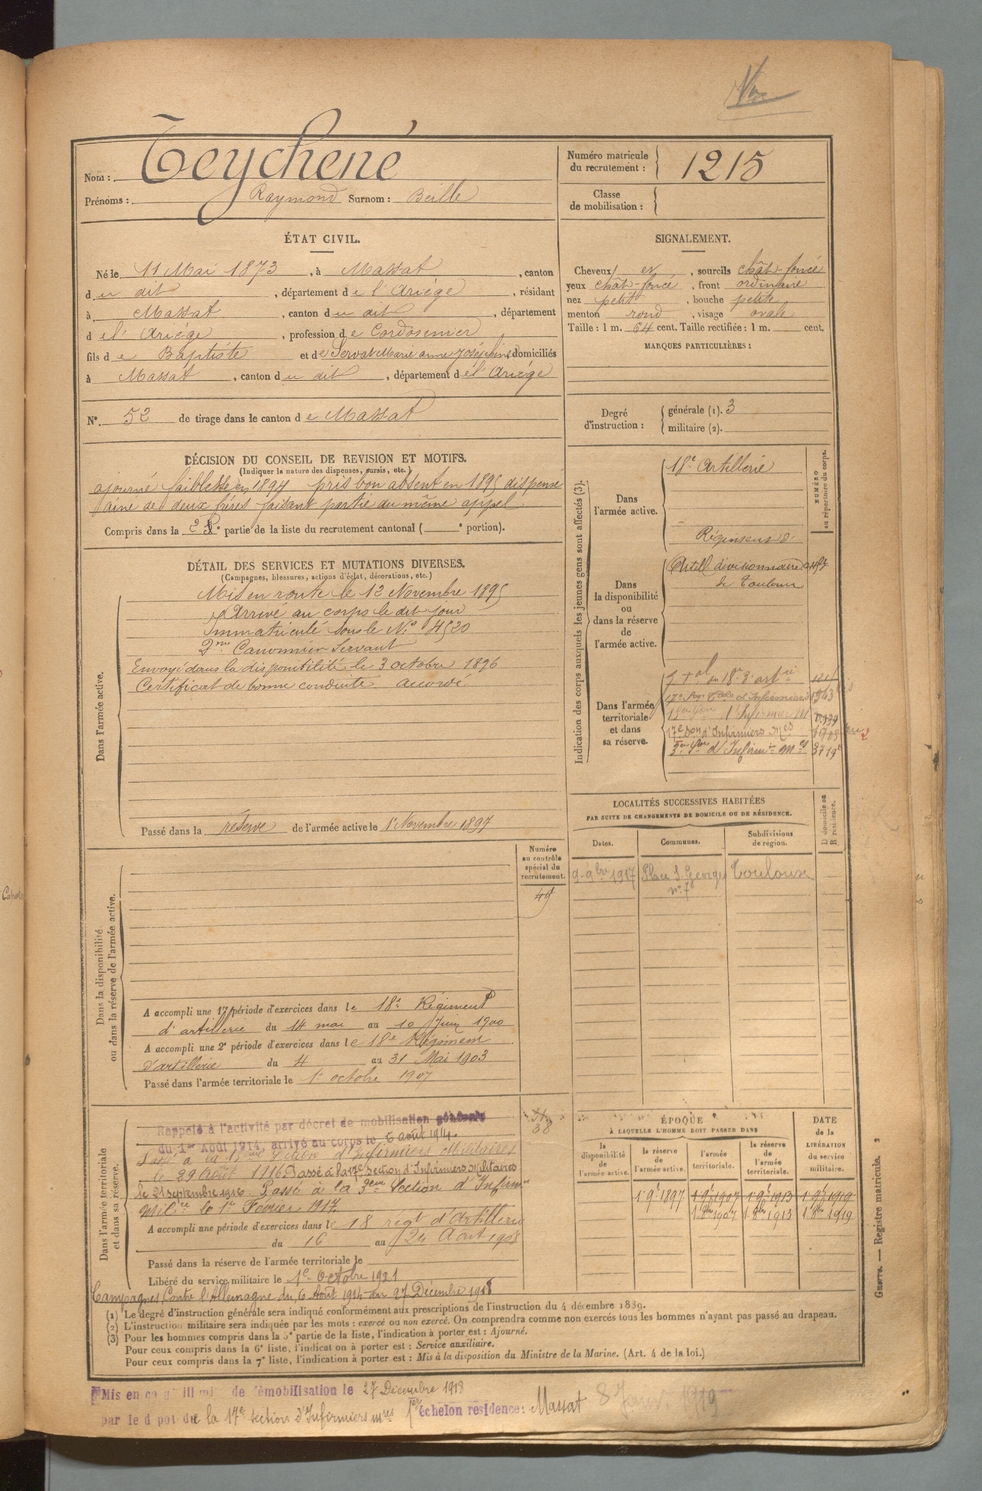 Teychené
Nom :
Prénoms : Raymond Surnom : Beille
Numéro matricule
du recrutement : 1215
Classe
de mobilisation :
ÉTAT CIVIL.
Né le 11 Mai 1873, à Massat, canton
du dit, département de l'Ariège, résidant
à Massat, canton du dit, département
de l'Ariège, profession de Cordonnier
fils de Baptiste et de Servat Marie anne Joséphine domiciliés
à Massat, canton du dit, département de l'Ariège
N° 52 de tirage dans le canton de Massat
SIGNALEMENT.
Cheveux et, sourcils chât-foncé
yeux chât-foncé, front ordinaire
nez petit, bouche petite
menton rond, visage ovale
Taille : 1 m. 64 cent. Taille rectifiée : 1 m. cent.
MARQUES PARTICULIÈRES :
Degré
d'instruction :
générale (1). 3
militaire (2).
DÉCISION DU CONSEIL DE REVISION ET MOTIFS.
(Indiquer la nature des dispenses, sursis, etc.)
ajourné faiblesse en 1894 pris bon absent en 1895 dispensé
aîné de deux frères faisant partie du même appel
Compris dans la 2e partie de la liste du recrutement cantonal ( e portion).
DÉTAIL DES SERVICES ET MUTATIONS DIVERSES.
(Campagnes, blessures, actions d'éclat, décorations, etc.)
Dans l'armée active.
Mis en route le 12 Novembre 1895
Arrivé au corps le dit jour
Immatriculé sous le N° 4520
2me Canonnier Servant
Envoyé dans la disponibilité le 3 octobre 1896
Certificat de bonne conduite accordé
Passé dans la réserve de l'armée active le 1er Novembre 1897
Indication des corps auxquels les jeunes gens sont affectés (3).
NUMÉRO
au répertoire du corps.
Dans
l'armée active.
18e Artillerie
Dans
la disponibilité
ou
dans la réserve
de
l'armée active.
Artill divisionnaire
de Toulouse
Dans l'armée
territoriale
et dans
sa réserve.
17e Son d'Infirmiers
LOCALITÉS SUCCESSIVES HABITÉES
PAR SUITE DE CHANGEMENTS DE DOMICILE OU DE RÉSIDENCE.
Dates. Communes. Subdivisions
de région.
D domicile ou
R résidence.
9-9bre 1917 Place S. Georges Toulouse
n° 7
Numéro
au contrôle
spécial du
recrutement.
49
Dans la disponibilité
ou dans la réserve de l'armée active.
A accompli une 1re période d'exercices dans le 18e Régiment
d'artillerie du 14 mai au 10 Juin 1900
A accompli une 2e période d'exercices dans le 18e Régiment
d'artillerie du 4 au 31 Mai 1903
Passé dans l'armée territoriale le 1er octobre 1907
Dans l'armée territoriale
et dans sa réserve.
Rappelé à l'activité par décret de mobilisation générale
du 1er Août 1914, arrivé au corps le 6 août 1914.
le 29 Août 1916 Passé à la 17e Section d'Infirmiers Militaires
le 21 Septembre 1916 Passé à la 3eme Section d'Infirm
milit le 1er Février 1917
A accompli une période d'exercices dans le 18 regt d'Artillerie
du 16 au 24 Août 1908
Passé dans la réserve de l'armée territoriale le
Libéré du service militaire le 1er Octobre 1921
Campagnes Contre l'Allemagne du 6 Août 1914 au 27 Décembre 1918
ÉPOQUE
À LAQUELLE L'HOMME DOIT PASSER DANS
la
disponibilité
de
l'armée active.
la réserve
de
l'armée active.
l'armée
territoriale.
la réserve
de
l'armée
territoriale.
DATE
de la
LIBÉRATION
du
service
militaire.
1 9e 1897 1 9e 1907 1 9e 1913 1 9e 1919
1 8bre 1907 1 8bre 1913 1 8bre 1919
Guerre. — Registre matricule. 2
(1) Le degré d'instruction générale sera indiqué conformément aux prescriptions de l'instruction du 4 décembre 1889.
(2) L'instruction militaire sera indiquée par les mots : exercé ou non exercé. On comprendra comme non exercés tous les hommes n'ayant pas passé au drapeau.
(3) Pour les hommes compris dans la 5e partie de la liste, l'indication à porter est : Ajourné.
Pour ceux compris dans la 6e liste, l'indication à porter est : Service auxiliaire.
Pour ceux compris dans la 7e liste, l'indication à porter est : Mis à la disposition du Ministre de la Marine. (Art. 4 de la loi.)
Mis en co g ill mi de démobilisation le 27 Décembre 1918
par le d pot de la 17e section d'Infirmiers mres 1er échelon résidence : Massat 8 Janv. 1919